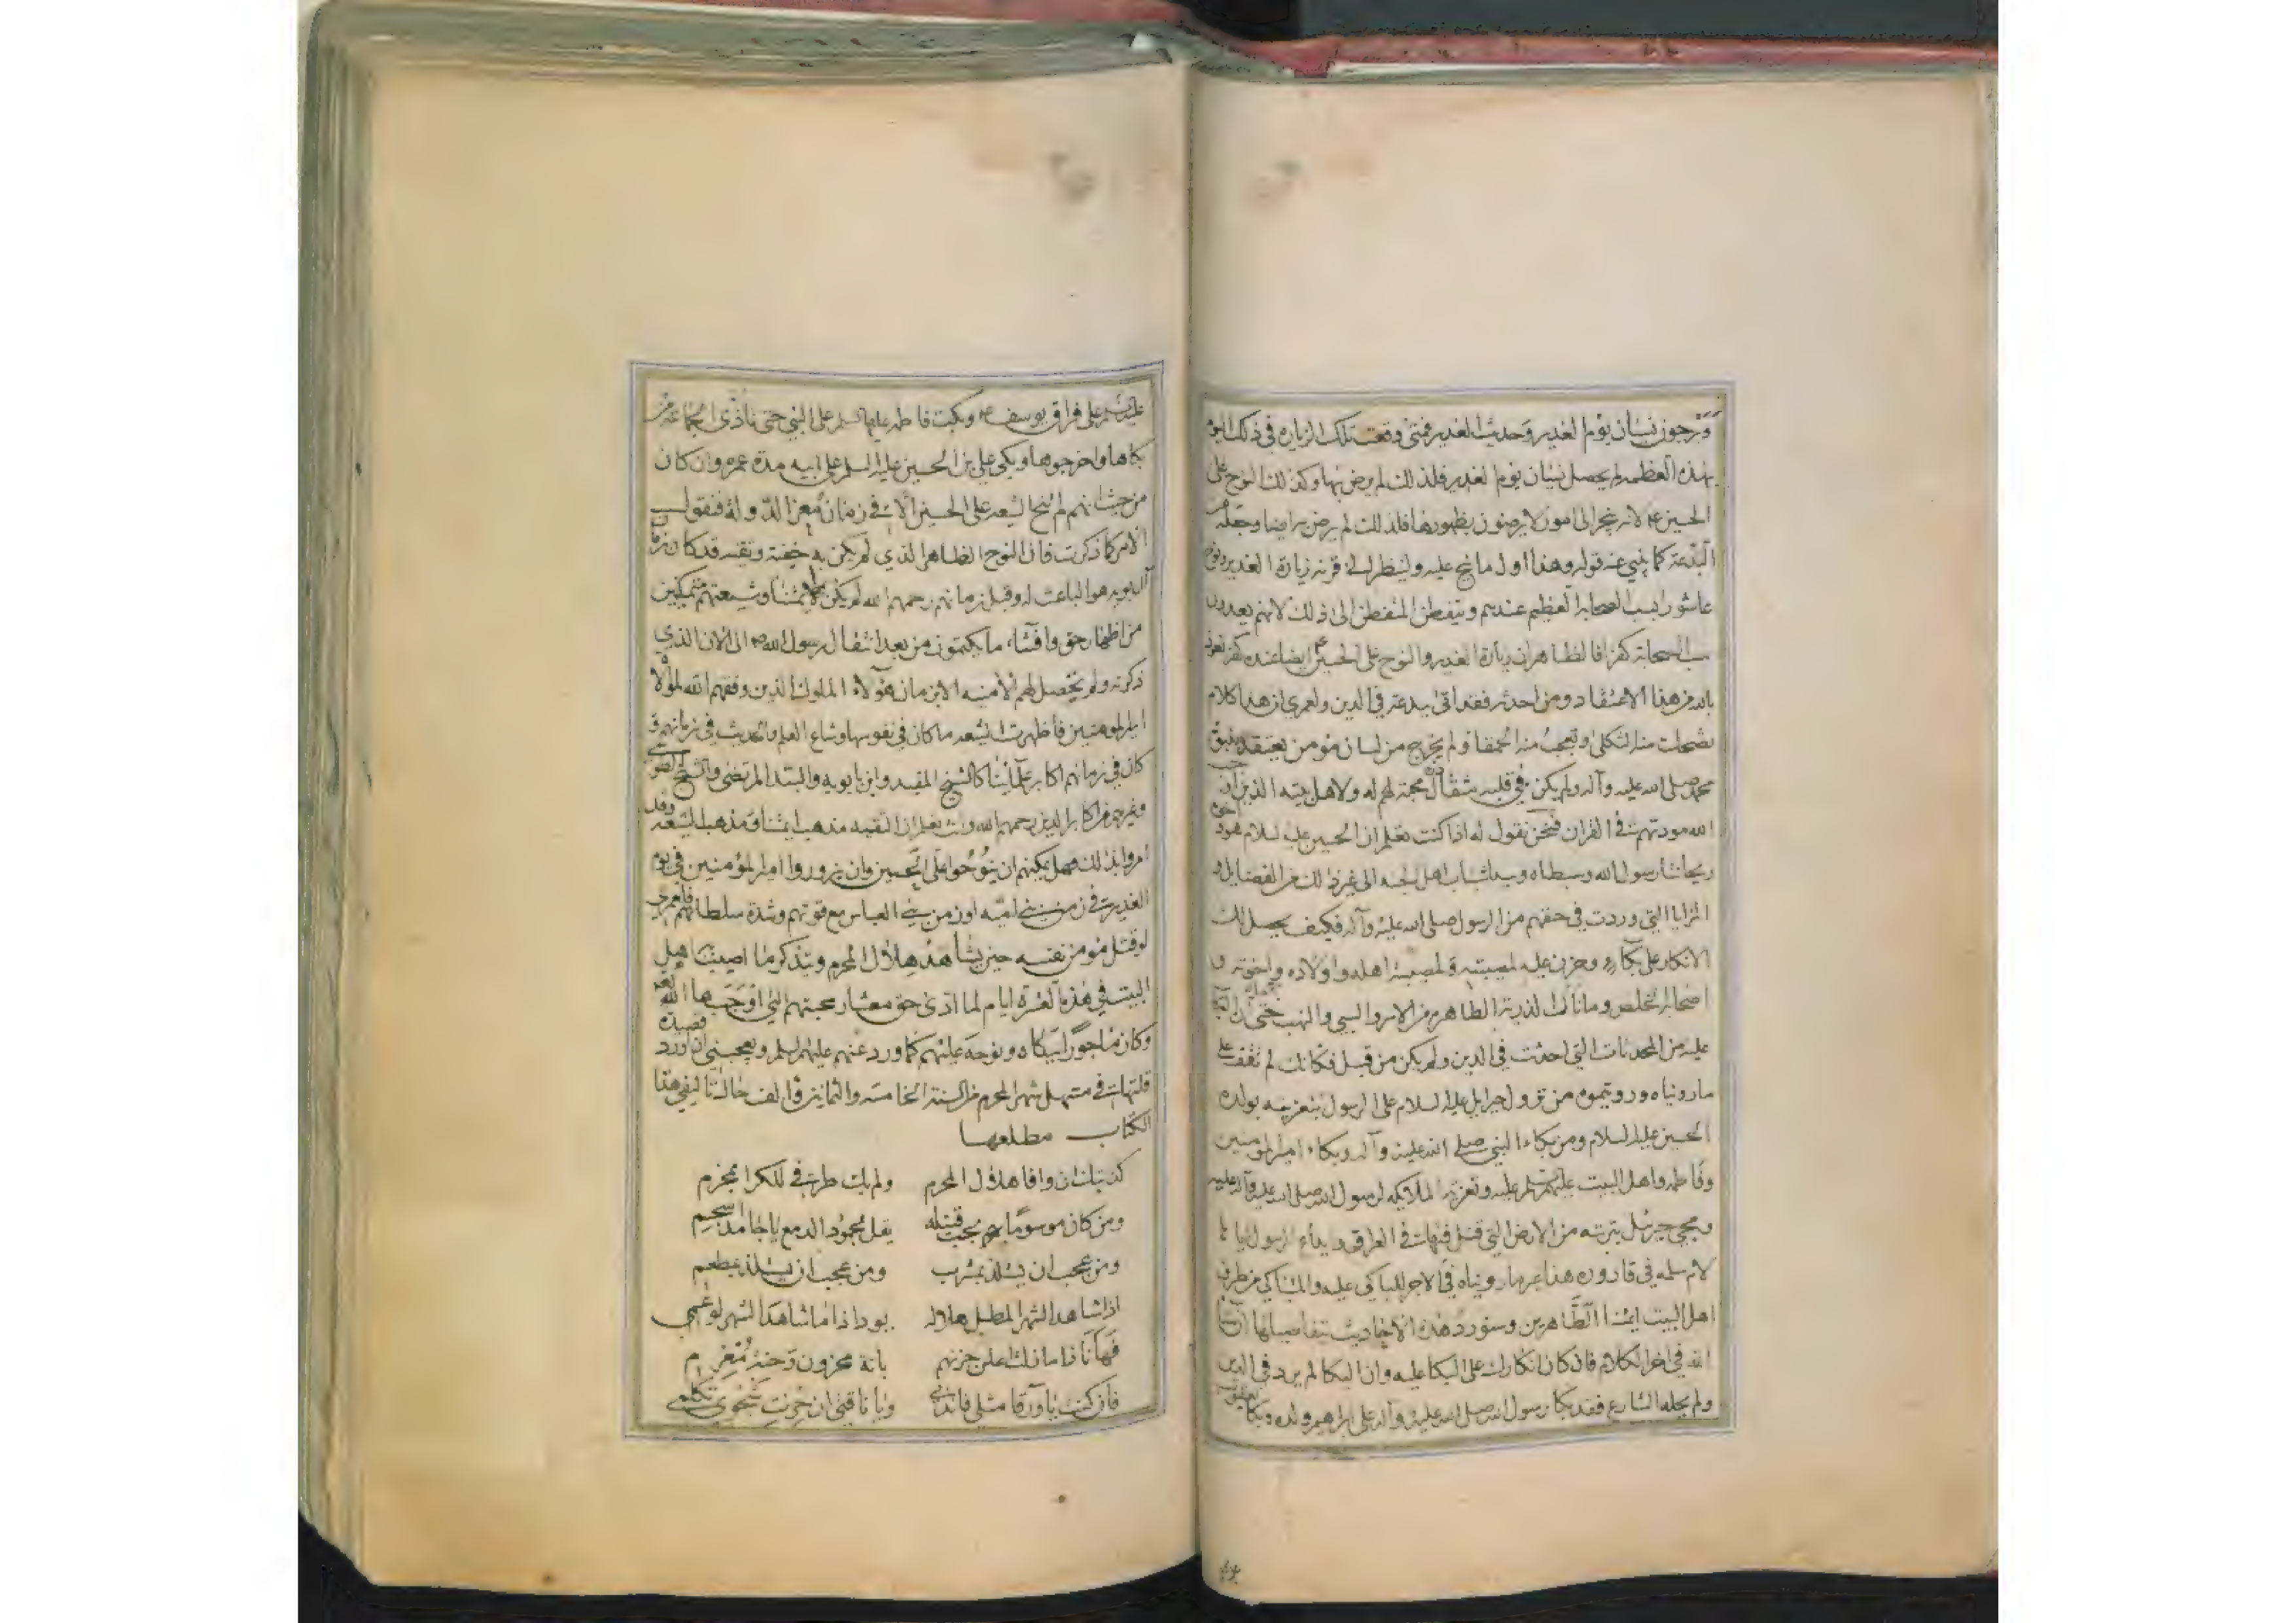 ويرجون نسيان يوم الغدير وحديث الغدير فمتى وقعت تلك الزياره في ذلك اليوم
بهذه العظمه لم يحصل نسيان يوم الغدير فلذلك لم يرض بها وكذلك النوح على
الحسين ع لانه ينجر الى امور لا يرضون بظهورها فلذلك لم يرض به ايضا وجعله من
البدعة كما ينبي عنه قوله وهذا اول ما نيح عليه ولينظر الى قرنه زيارة الغدير ونوح
عاشورا بسب الصحابه العظيم عندهم ويتفطن المتفطن الى ذلك لانهم يعدون
سب الصحابة كفرا فالظاهر ان زيارة الغدير والنوح على الحسين ع ايضا عنده كفر نعوذ
بالله من هذا الاعتقاد ومن احدثه فقد اتى ببدعة في الدين ولعمري ان هذا كلام
تضحك منه الثكلى وتعجب منه الحمقا ولم يخرج من لسان مؤمن يعتقد بنبوة
محمد صلى الله عليه وآله ولم يكن في قلبه مثقال ذرة محبة لهم له ولاهل بيته الذين اوجب
الله مودتهم في القران فنحن نقول له اذا كنت تعلم ان الحسين عليه السلام هو واخوه
ريحانتا رسول الله وسبطاه وسيدا شباب اهل الجنه الى غير ذلك من الفضايل و
المزايا التي وردت في حقهم من الرسول صلى الله عليه وآله فكيف يحصل لك
الانكار على بكاء وحزن عليه لمصيبته ولمصيبة اهله واولاده واخوته و
اصحابه الخلص وما نال لذريته الطاهره من الاسر والسبي والنهب حتى ان البكا
عليه من المحدثات التي احدثت في الدين ولم يكن من قبل فكانك لم تقف على
ما رويناه ورويتموه من نزول جبرايل عليه السلام على الرسول بتعزيه بولده
الحسين عليه السلام ومن بكاء النبي صلى الله عليه وآله وبكاء امير المومنين
وفاطمه واهل البيت عليهم السلام عليه وتعزيه الملائكه لرسول الله صلى الله عليه وآله عليه
ومجي جبرئيل بتربته من الارض التي قتل فيها في العراق الرسول اياها
لام سلمه في قاروره هذا غير ما رويناه في الاجر للباكي عليه والمتباكي من طرق
اهل البيت ائمتنا الطاهرين وسنورد هذه الاحاديث بتفاصيلها ان شاء
الله في اخر الكلام فان كان انكارك على البكا عليه وان البكا لم يرد في الدين
ولم يحله الشارع فقد بكا رسول الله صلى الله عليه وآله على ابراهيم ولده وبكا يعقوب
عليه السلم على فراق يوسف ع وبكت فاطمه عليها السلم على النبي حتى تأذى الجماعة من
بكاها واخرجوها وبكى علي بن الحسين عليه السلم على ابيه مدة عمره وان كان
من حيث انهم لم ينح الشيعه على الحسين الا في زمان معز الدوله فنقول
الامر كما ذكرت فان النوح الظاهر الذي لم يكن به خفية وتقيه قد كان زمان
آل بويه هو الباعث له وقبل زمانهم رحمهم الله لم يكن لائمتنا وشيعتهم متمكنين
من اظهار حق وافشاء ما يكتمون من بعد انتقال رسول الله ص الى الان الذي
ذكرته ولم يحصل لهم الامنيه الا زمان هؤلاء الملوك الذين وفقهم الله لموالا
امير المومنين فاظهرت الشيعه ما كان في نفوسها وشاع العلم والحديث في زمانهم و
كان في زمانهم اكابر علمائنا كالشيخ المفيد وابن بابويه والسيد المرتضى والشيخ الطوسي
وغيرهم من اكابر الدين رحمهم الله وانت تعلم ان التقيه مذهب ائمتنا ومذهب الشيعه وقد
امروا بذلك فهل يمكنهم ان ينوحوا على الحسين وان يزوروا امير المؤمنين في يوم
الغدير في زمن بني اميه او زمن بني العباس مع قوتهم وشدة سلطانهم فلعمري
لو قتل مؤمن نفسه حين يشاهد هلال المحرم ويتذكر ما اصيب اهل
البيت في هذه العشرة ايام لما ادى حق معشار محبتهم التي اوجبها الله لهم
وكان ماجورا ببكاه ونوحه عليهم كما ورد عنهم عليهم السلم ويعجبني ان اورد قصيدة
قلتها في مستهل شهر المحرم من السنة الخامسه والثمانين والف حال تاليفي هذا
الكتاب مطلعها
كذبتك ان وافا هلال المحرم ولم يك طرفي للكرا بمحرم
ومن كان موسوما بحب قتيله يقل لجمود الدمع يا جامد اسجم
ومن عجب ان يستلذ بمشرب ومن عجب ان يستلذ بمطعم
اذا شاهد الشهر المطل هلاله يود اذا ما شاهد الشهر لو عمي
فها انا ذا ما زلت اعلن حزنهم بانة محزون وحنة مغرم
فان كنت يا ورقا مثلي فاندبي ويا ناقتي ان حزت شجوي تكلمي